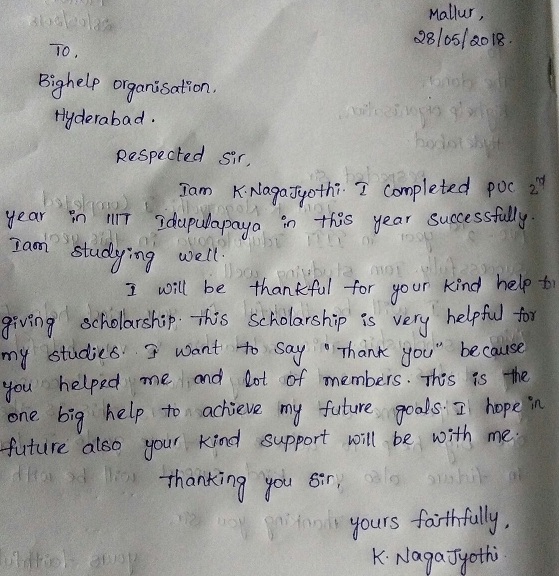 Mallur,
28/05/2018.
To,
Bighelp organisation,
Hyderabad.
Respected Sir,
Iam K.NagaJyothi. I completed PUC 2nd
year in IIIT Idupulapaya in this year successfully.
Iam studying well.
I will be thankful for your kind help to
giving scholarship. This scholarship is very helpful for
my studies. I want to say "Thank you" because
you helped me and lot of members. This is the
one big help to achieve my future goals. I hope in
future also your kind support will be with me.
Thanking you Sir,
yours faithfully,
K. NagaJyothi.